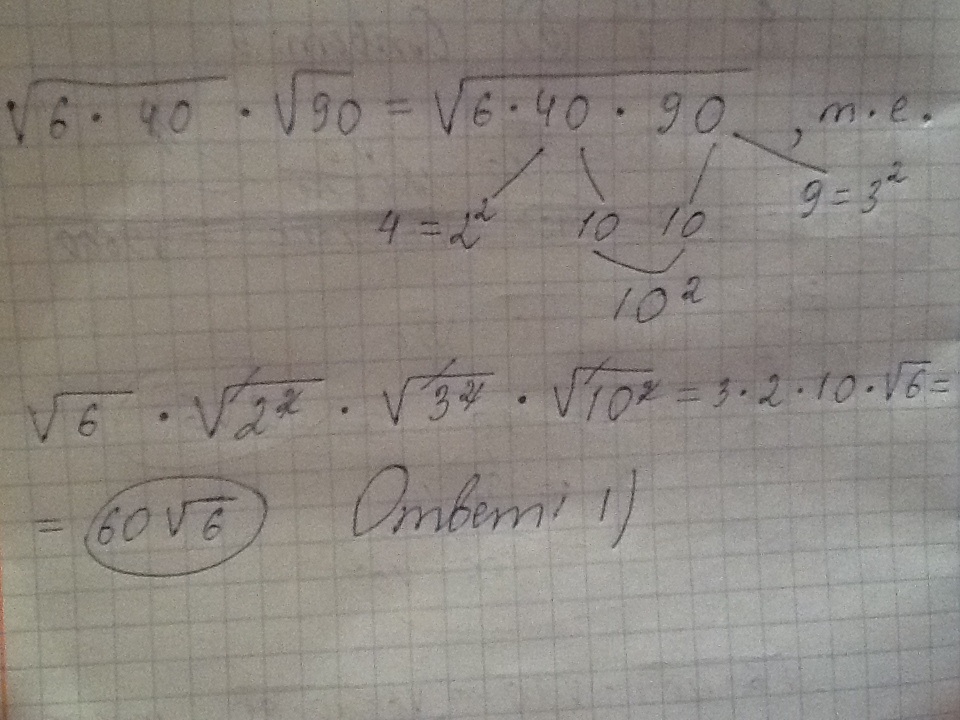 √6 · 40 · √90 = √6 · 40 · 90 , т.е.
4 = 2² 10 10 9 = 3²
10²
√6 · √2² · √3² · √10² = 3 · 2 · 10 · √6 =
= 60√6 Ответ: 1)